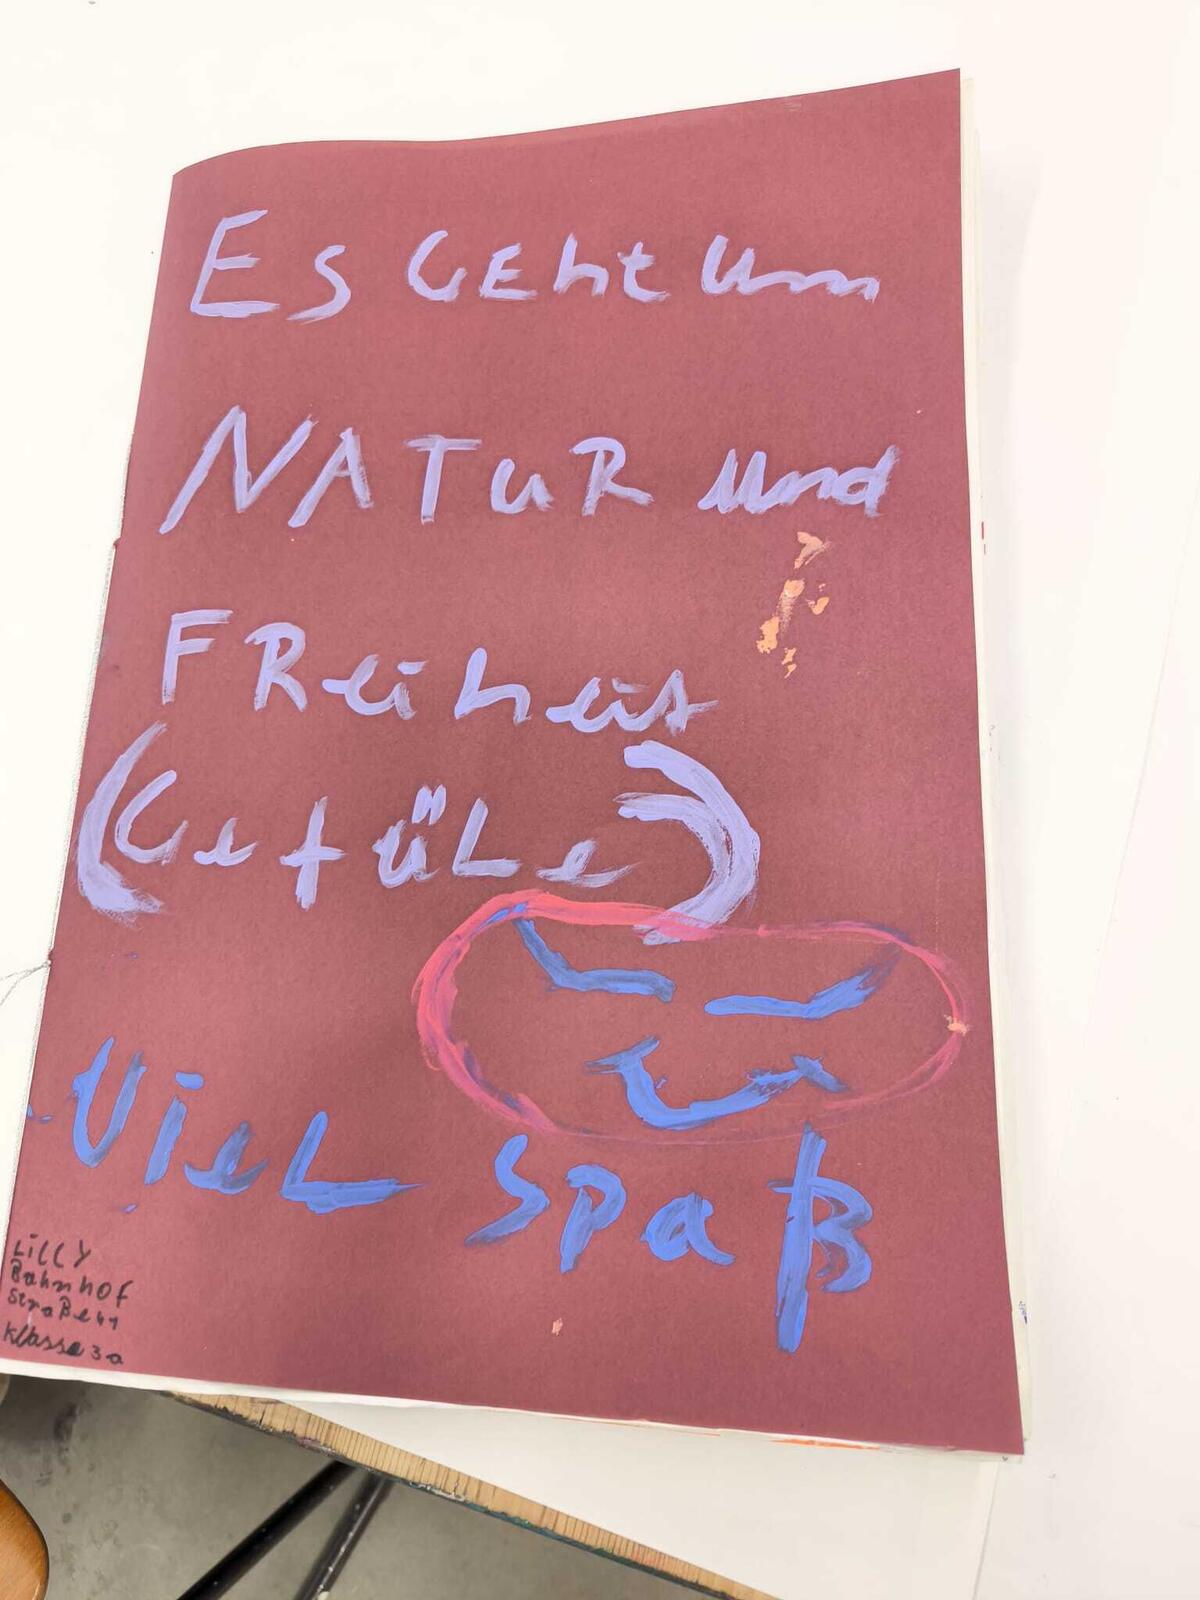 Es GEht um
NATuR und
FReiheit
(GefüLe)
Viel Spaß
Lilly
BahnhOF
Straße 41
Klasse 3a